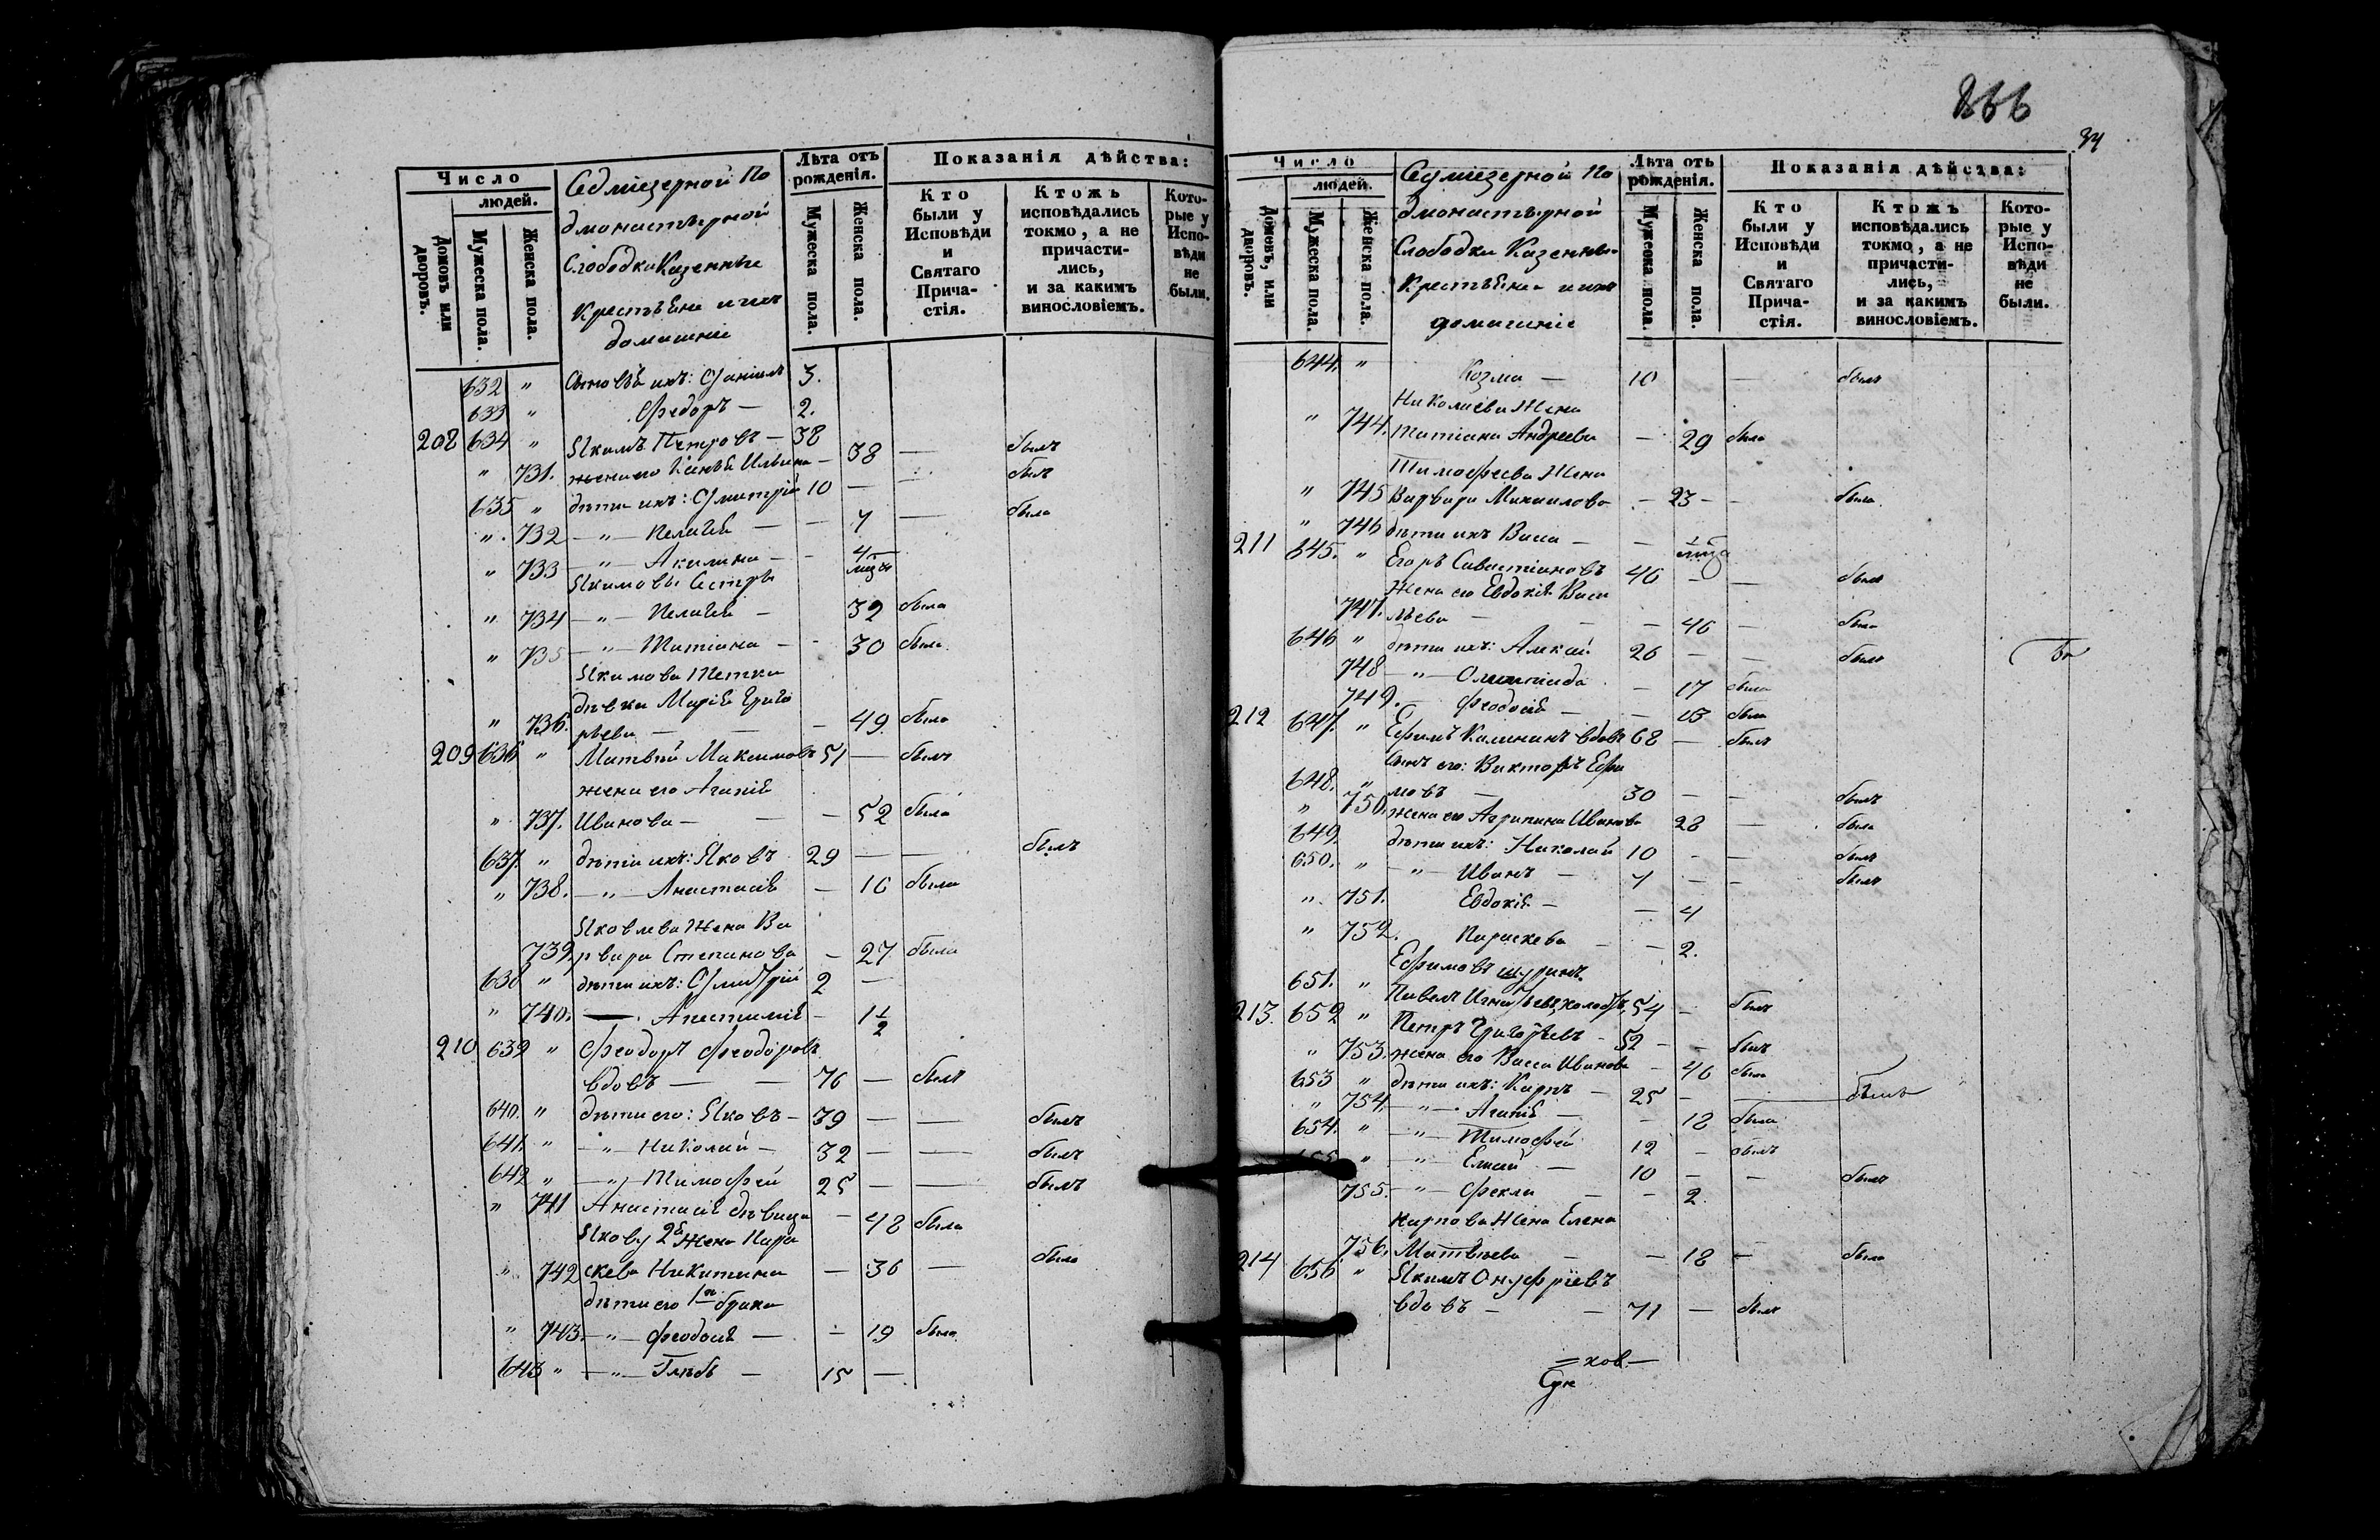 Число
людей.
Домовъ или дворовъ.
Мужеска пола.
Женска пола.
Седмiезерной По
дмонастырной
Слободки Казенные
Крестьяне и ихъ
домашнiе
Лѣта отъ рожденiя.
Мужеска пола.
Женска пола.
Показанiя дѣйства:
Кто были у Исповѣди и Святаго Прича-стiя.
Ктожъ исповѣдались токмо, а не причасти-лись, и за какимъ винословiемъ.
Кото-рые у Испо-вѣди не были.
632 " Сыновья ихъ: Данiилъ 3.
633 " Феодоръ — 2.
208 634 " Якимъ Петровъ — 38 был
" 731. жена его Ксенья Ильина — 38 — был
635 " дѣти ихъ: Дмитрiй 10 —
" 732 — " — Пелагiя — — 7 — была
" 733 — " — Акилина — - 4
Якимовы Сестры
" 734 — " — Пелагiя — 32 была
" 735 — " — Татiана — - 30 была
Якимова Тетка
дѣвка Марiя Григо
" 736. рьева — — — 49. была
209 636 " Матвѣй Максимовъ 51 — былъ
жена его Агапiя
" 737. Иванова — — — 52 была
637. " дѣти ихъ: Яковъ 29 — — былъ
" 738. — " — Анастасiя — 16 была
Яковлева Жена Ва
739. рвара Степанова — 27. была
638 " дѣти ихъ: Дмитрiй 2 —
" 740. — 1 1/2
210 639 " Феодоръ Феодоровъ
вдовъ — — 76 — былъ
640. " дѣти его: Яковъ — 39 — — былъ
641. " — " — Николай — 32 — — былъ
642 " — " — Тимофей 25 — — былъ
" 741 Анастасiя дѣвица — 48 была
Якову 2я Жена Пара
" 742 скева Никитина — 36 — была
дѣти его 1го брака
" 743. — " — Феодосiя — — 19 была
643 " — " — Глѣбъ — 15 —
266
34
Число
людей.
Домовъ, или дворовъ.
Мужеска пола.
Женска пола.
Седмiезерной По
дмонастырной
Слободки Казенные
Крестьяне и ихъ
домашнiе
Лѣта отъ рожденiя.
Мужеска пола.
Женска пола.
Показанiя дѣйства:
Кто были у Исповѣди и Святаго Прича-стiя.
Ктожъ исповѣдались токмо, а не причасти-лись, и за какимъ винословiемъ.
Кото-рые у Испо-вѣди не были.
644. " Козма — 10 — былъ
Николаева Жена
" 744. Татiана Андреева — 29 была
Тимофеева Жена
" 745 Варвара Михаилова — 23 — была
" 746 дѣти ихъ Васса — —
211 645. " Егоръ Савастiановъ 46 — — былъ
Жена его Евдокiя Васи
747. льева — — — 46 — была
646 " дѣти ихъ: Алексѣй 26 — — былъ
748 — " — Олимпiада — 17 была
749. — Феодосiя — — 13 была
212 647. " Ефимъ Калининъ вдовъ 68 — былъ
Сынъ его: Викторъ Ефи
648. " мовъ — 30 — — былъ
" 750. жена его Агрипина Иванова 28 — была
649. дѣти ихъ: Николай 10 — — былъ
650. " — " — Иванъ — 7 — — былъ
" 751. Евдокiя — — 4
" 752. Параскева — — 2.
Ефимовъ шуринъ
651. " Павелъ Игнатьевъ холостъ 54 — былъ
213. 652 " Петръ Григорьевъ — 52 — — былъ
" 753. жена его Васса Иванова — 46 была
653 " дѣти ихъ: Карпъ — 25 — — былъ
" 754. — " — Агапiя — — 18 была
654. " — " — Тимофей 12 — былъ
655 " — " — Елисей — 10 — — былъ
755. — " — Фекла — — 2.
Карпова Жена Елена
756. Матвѣева — — 18 — была
214 656 " Якимъ Онуфрiевъ
вдовъ — — 71 — былъ